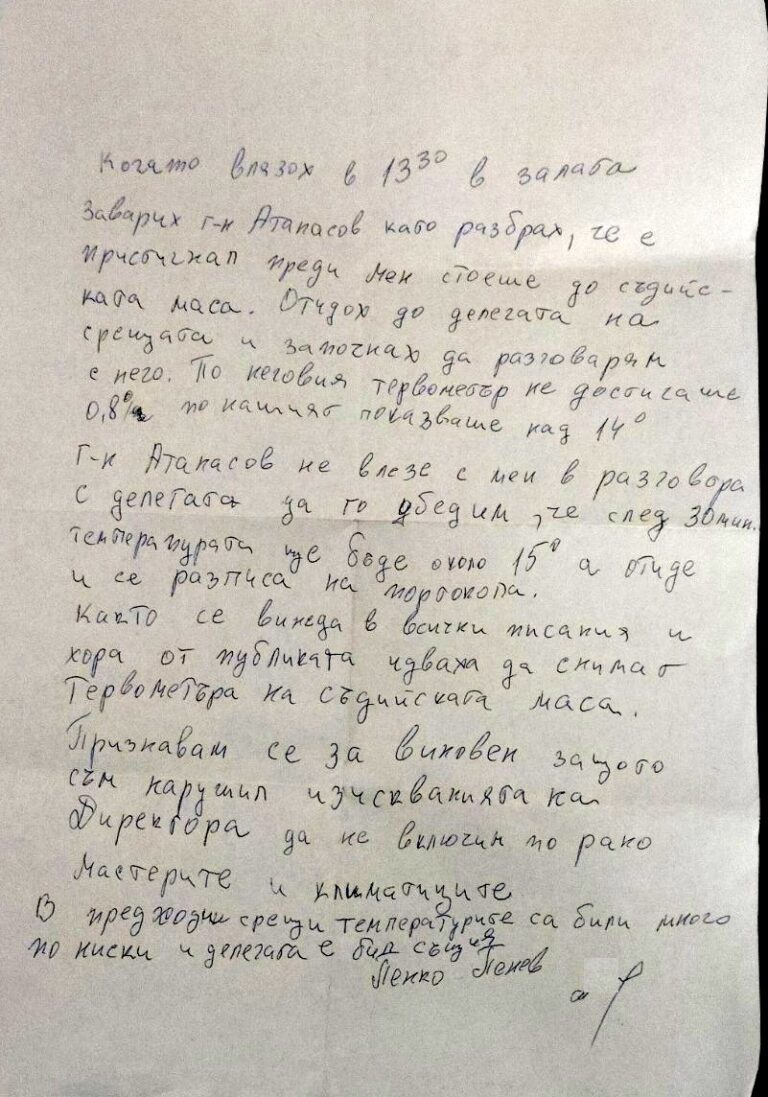 Когато влязох в 13³⁰ в залата
Заварих г-н Атанасов като разбрах, че е
пристигнал преди мен стоеше до съдийс-
ката маса. Отидох до делегата на
срещата и започнах да разговарям
с него. По неговия термометър не достигаше
0,8° по нашият показваше над 14°
Г-н Атанасов не влезе с мен в разговора
с делегата да го убедим, че след 30 мин.
температурата ще бъде около 15° а отиде
и се разписа на портокола.
Както се вижда в всички писания и
хора от публиката идваха да снимат
Термометъра на съдийската маса.
Признавам се за виновен защото
съм нарушил изискванията на
Директора да не включим по рано
Мастерите и климатиците
В предходни срещи температурите са били много
по ниски и делегата е бил същия
Пенко Пенев